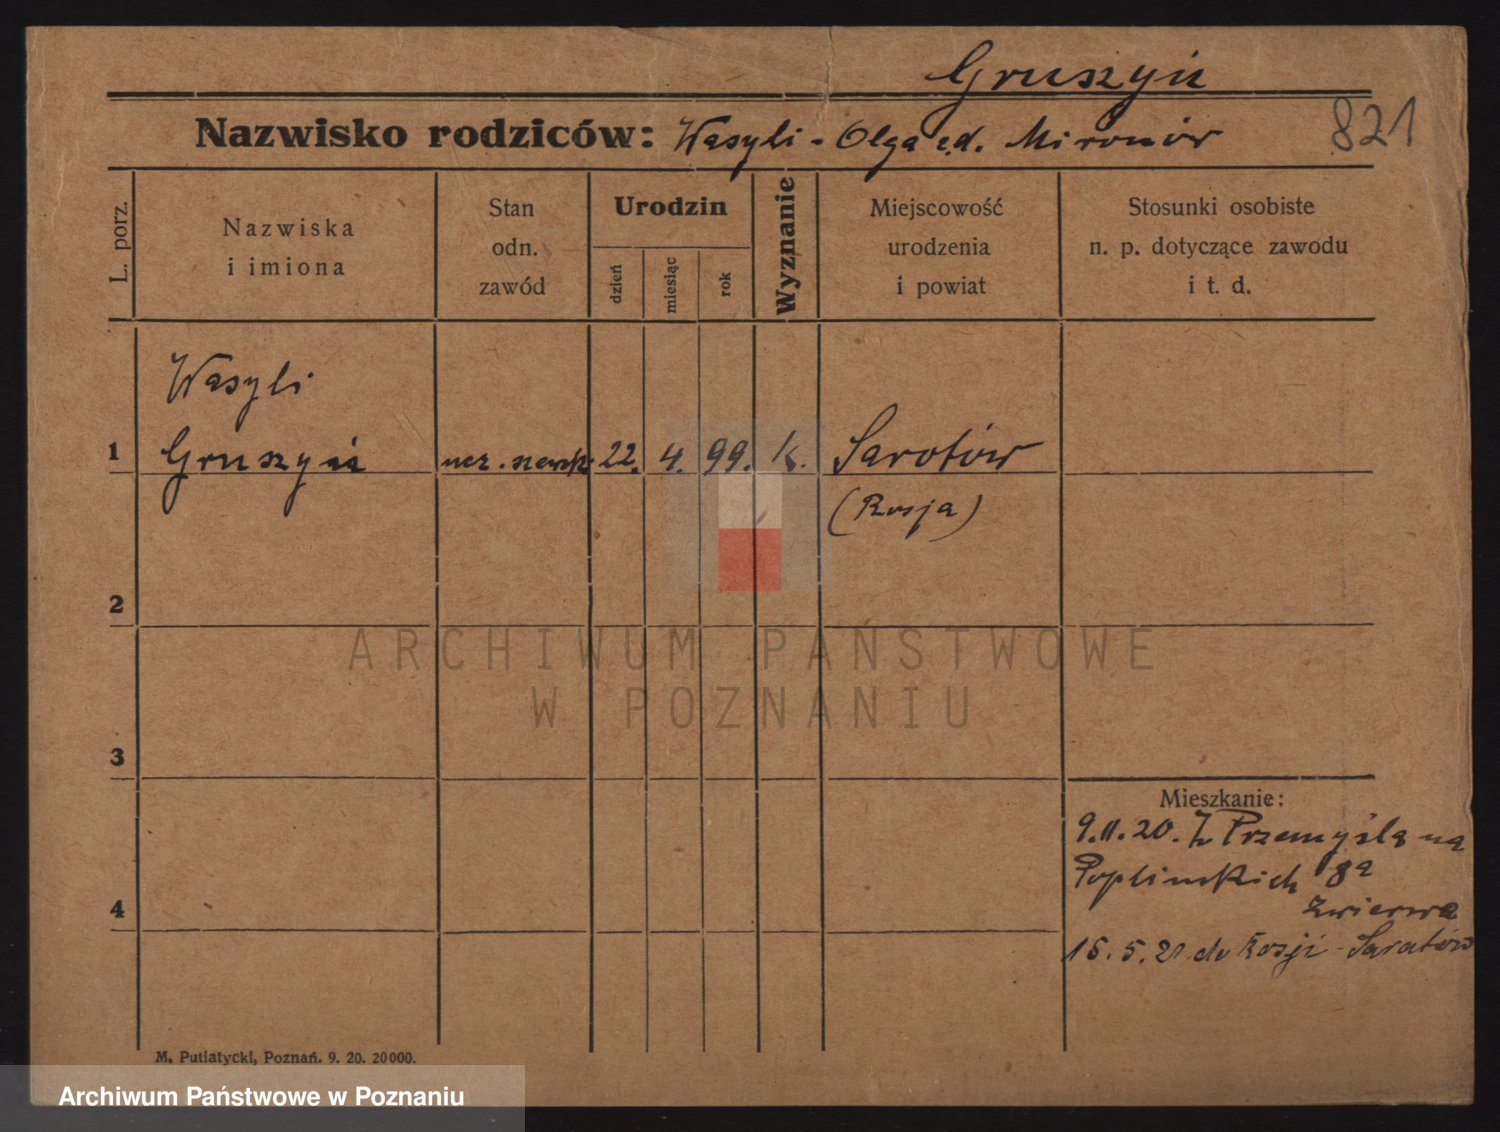 Gruszyń
821
Nazwisko rodziców: Wasyli - Olga z d. Mironów
L. porz.
Nazwiska
i imiona
Stan
odn.
zawód
Urodzin
dzień
miesiąc
rok
Wyznanie
Miejscowość
urodzenia
i powiat
Stosunki osobiste
n. p. dotyczące zawodu
i t. d.
Wasyli
1 Gruszyń ucz. szewsk. 22. 4. 99. k. Sarotów
(Rosja)
2
3
4
Mieszkanie:
9.11.20. Z Przemyśla na
Poplinskich 8a
15. 5. 21 do Rosji - Saratów
M. Putiatycki, Poznań. 9. 20. 20000.
ARCHIWUM PAŃSTWOWE
W POZNANIU
Archiwum Państwowe w Poznaniu